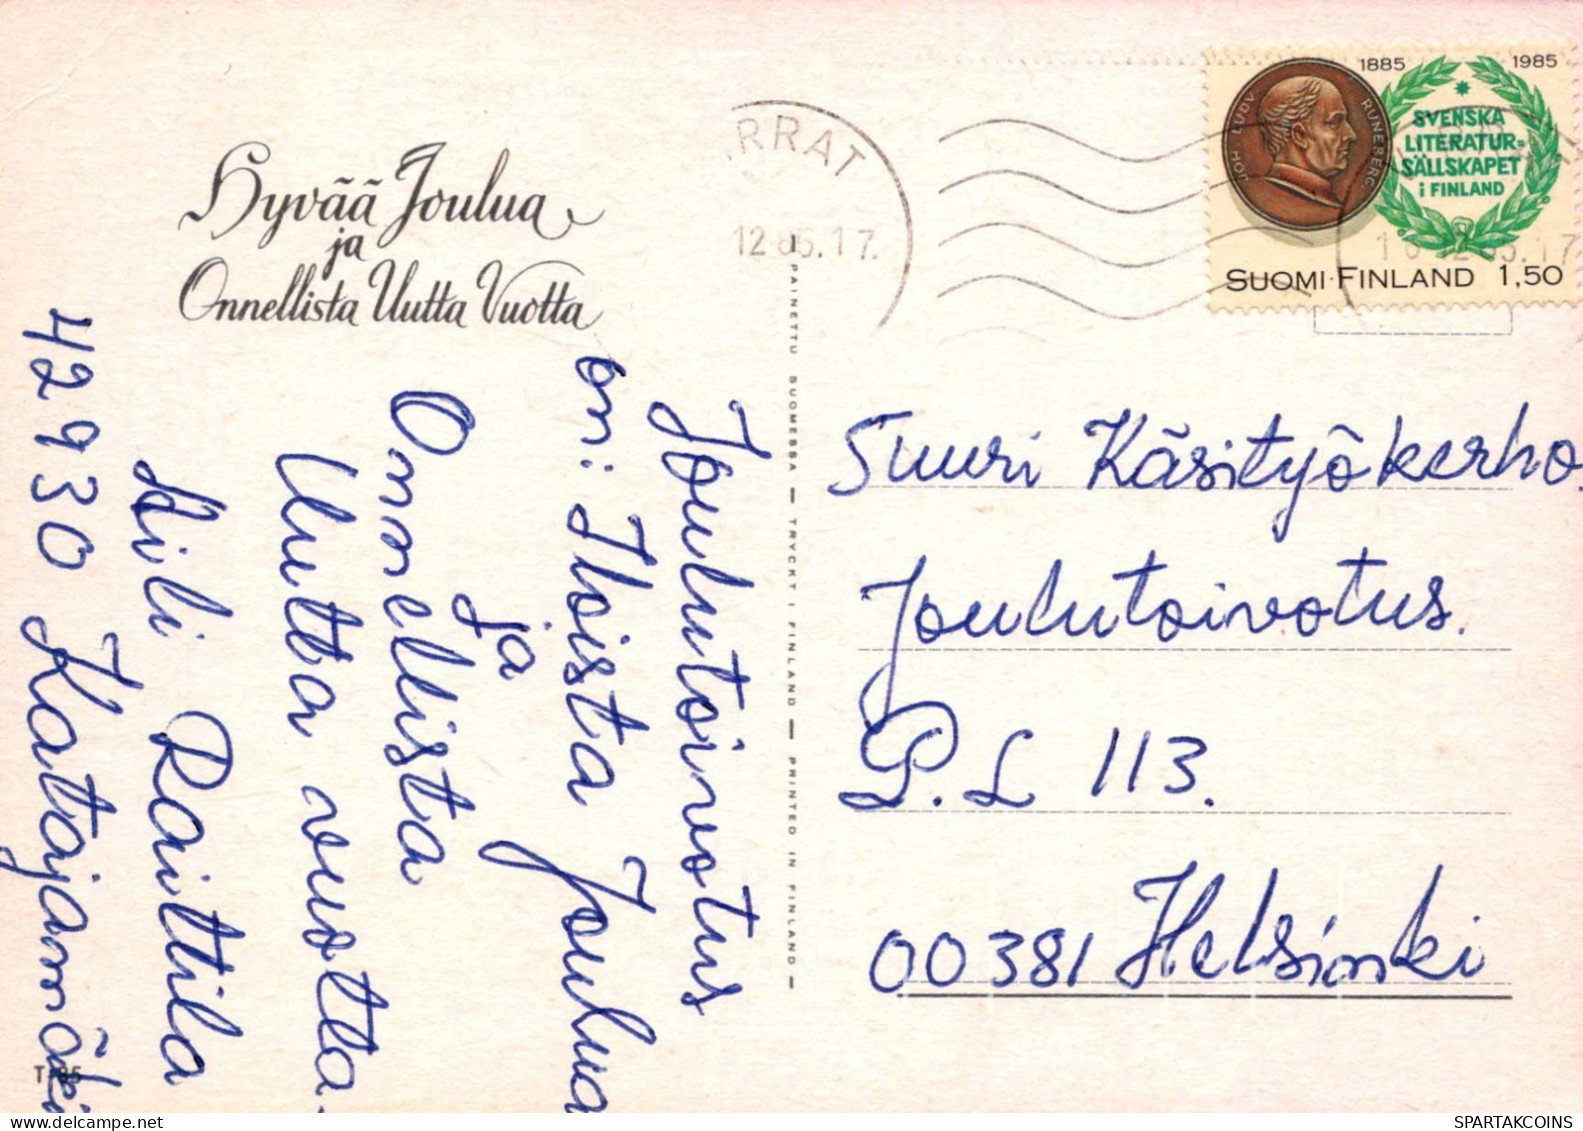 Hyvää Joulua
ja
Onnellista Uutta Vuotta
Joulutoivotus
on: Iloista Joulua
ja
Onnellista
Uutta vuotta.
Aili Raittila
42930 Kattajamäki
T-85
PAINETTU SUOMESSA — TRYCKT I FINLAND — PRINTED IN FINLAND —
RRAT
12 85.17.
1885 1985
LUDV RUNEBERG
SVENSKA
LITERATUR-
SÄLLSKAPET
i FINLAND
SUOMI·FINLAND 1,50
Suuri Käsityökerho.
Joulutoivotus.
P.L 113.
00381 Helsinki
SPARTAKCOINS